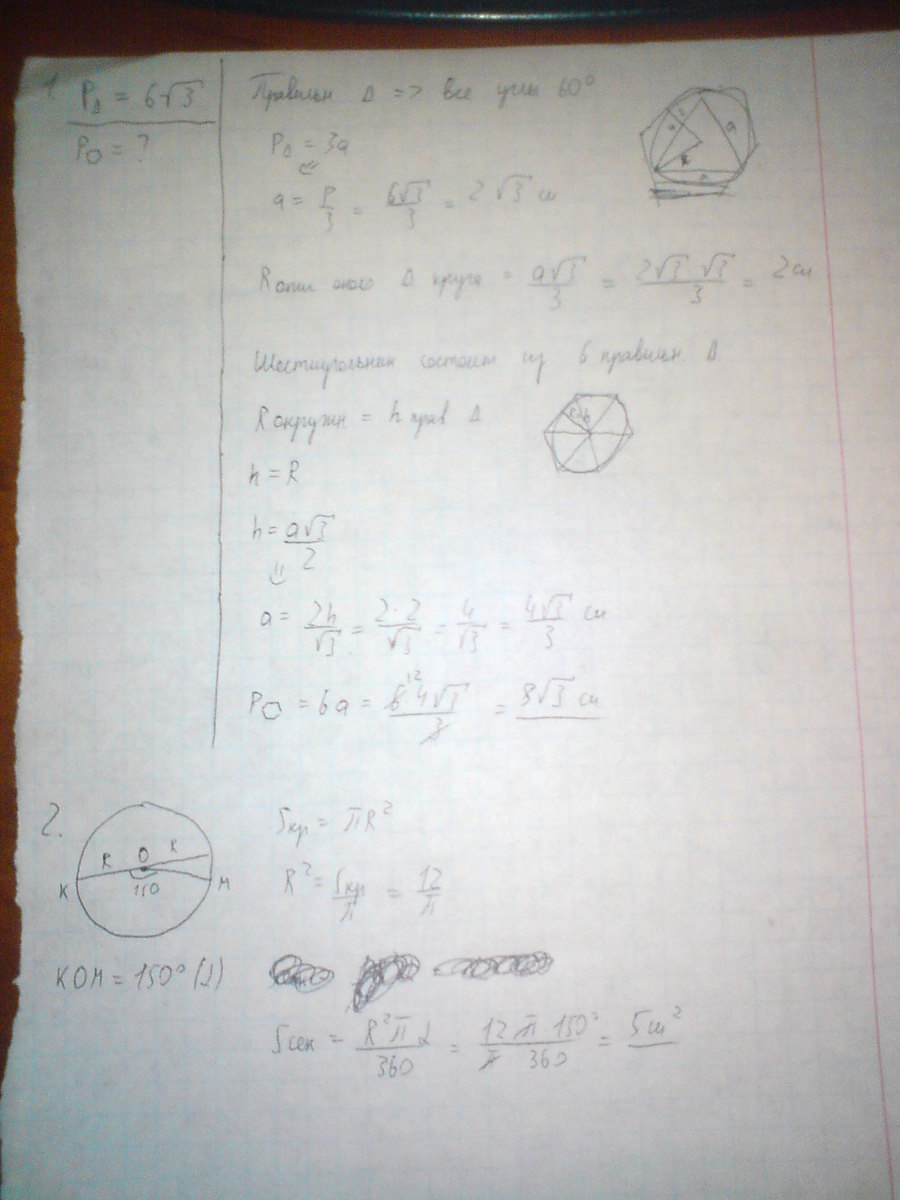 1 P△ = 6√3
P⬡ = ?
Правильн △ => все углы 60°
P△ = 3a
a = P/3 = 6√3/3 = 2√3 см
R опис около △ круга = a√3/3 = 2√3 √3/3 = 2 см
Шестиугольник состоит из 6 правильн. △
R окружн = h прав △
h = R
h = a√3/2
a = 2h/√3 = 2·2/√3 = 4/√3 = 4√3/3 см
P⬡ = 6a = 6·4√3/3 = 8√3 см
2.
R O R
K 150 M
KOM = 150° (α)
Sкр = πR²
R² = Sкр/π = 12/π
Sсек = R²π α/360 = 12 π 150°/π 360 = 5 см²